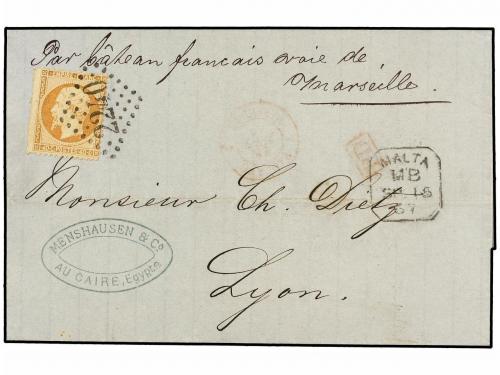 Par bâteau francais voie de
Marseille.
EMPIRE FRANC
40 C POSTES 40 C
2240
MALTA
MB
SP 18
67
Monsieur Ch. Dietz
MENSHAUSEN & Co.
AU CAIRE, Egypte
Lyon.